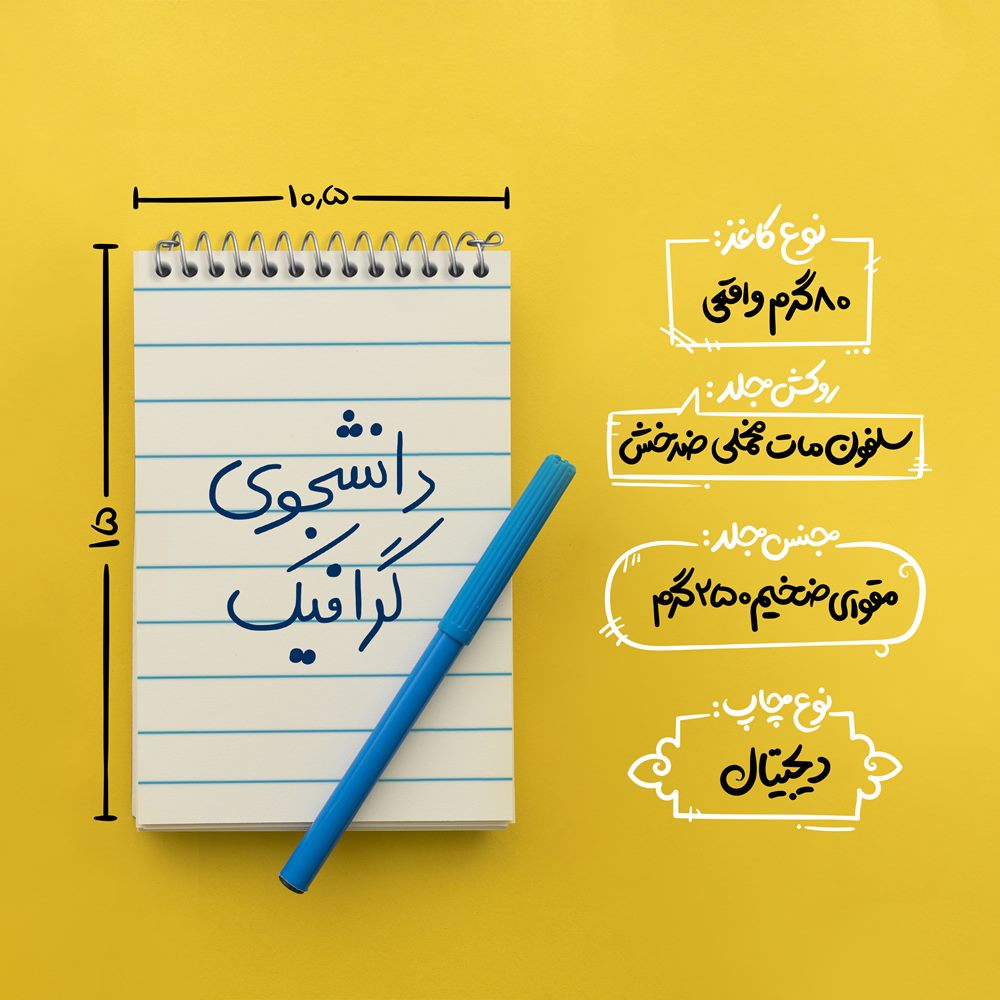 ۱۰٫۵
۱۵
دانشجوی
گرافیک
نوع کاغذ:
۸۰گرم واقعی
روکش جلد:
سلفون مات مخملی ضدخش
جنس جلد:
مقوای ضخیم ۲۵۰گرم
نوع چاپ:
دیجیتال